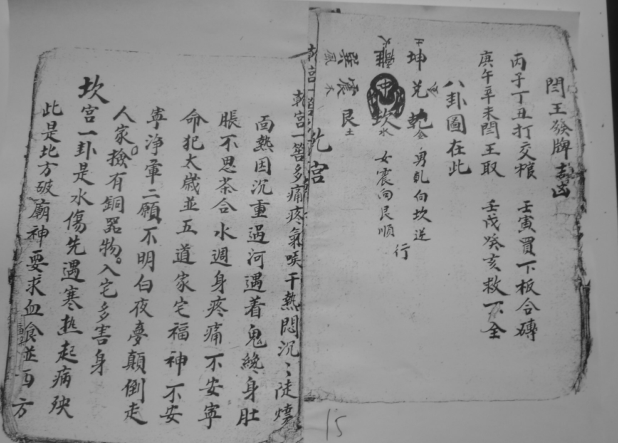 閆王發牌吉凶
丙子丁丑打交棺 壬寅買下板合磚
庚午辛未閆王取 壬戌癸亥救不全
八卦圖在此
坤兌乾金 男乱向坎逆行
離火 中 坎水 女震向艮順
巽木 震木 艮土
乹宫
乹宫一卦多痛疼氣咳干熱悶沉〻
面熱因沉重過河遇着鬼纔身肚
脹不思茶合水週身疼痛不安寧
命犯太歲並五道家宅福神不安
寧净軍二願不明白夜夢顛倒走
人家撿有銅器物入宅多害身
坎宫一卦是水傷先遇寒热起病殃
此是北方破廟神要求血食並西方
15